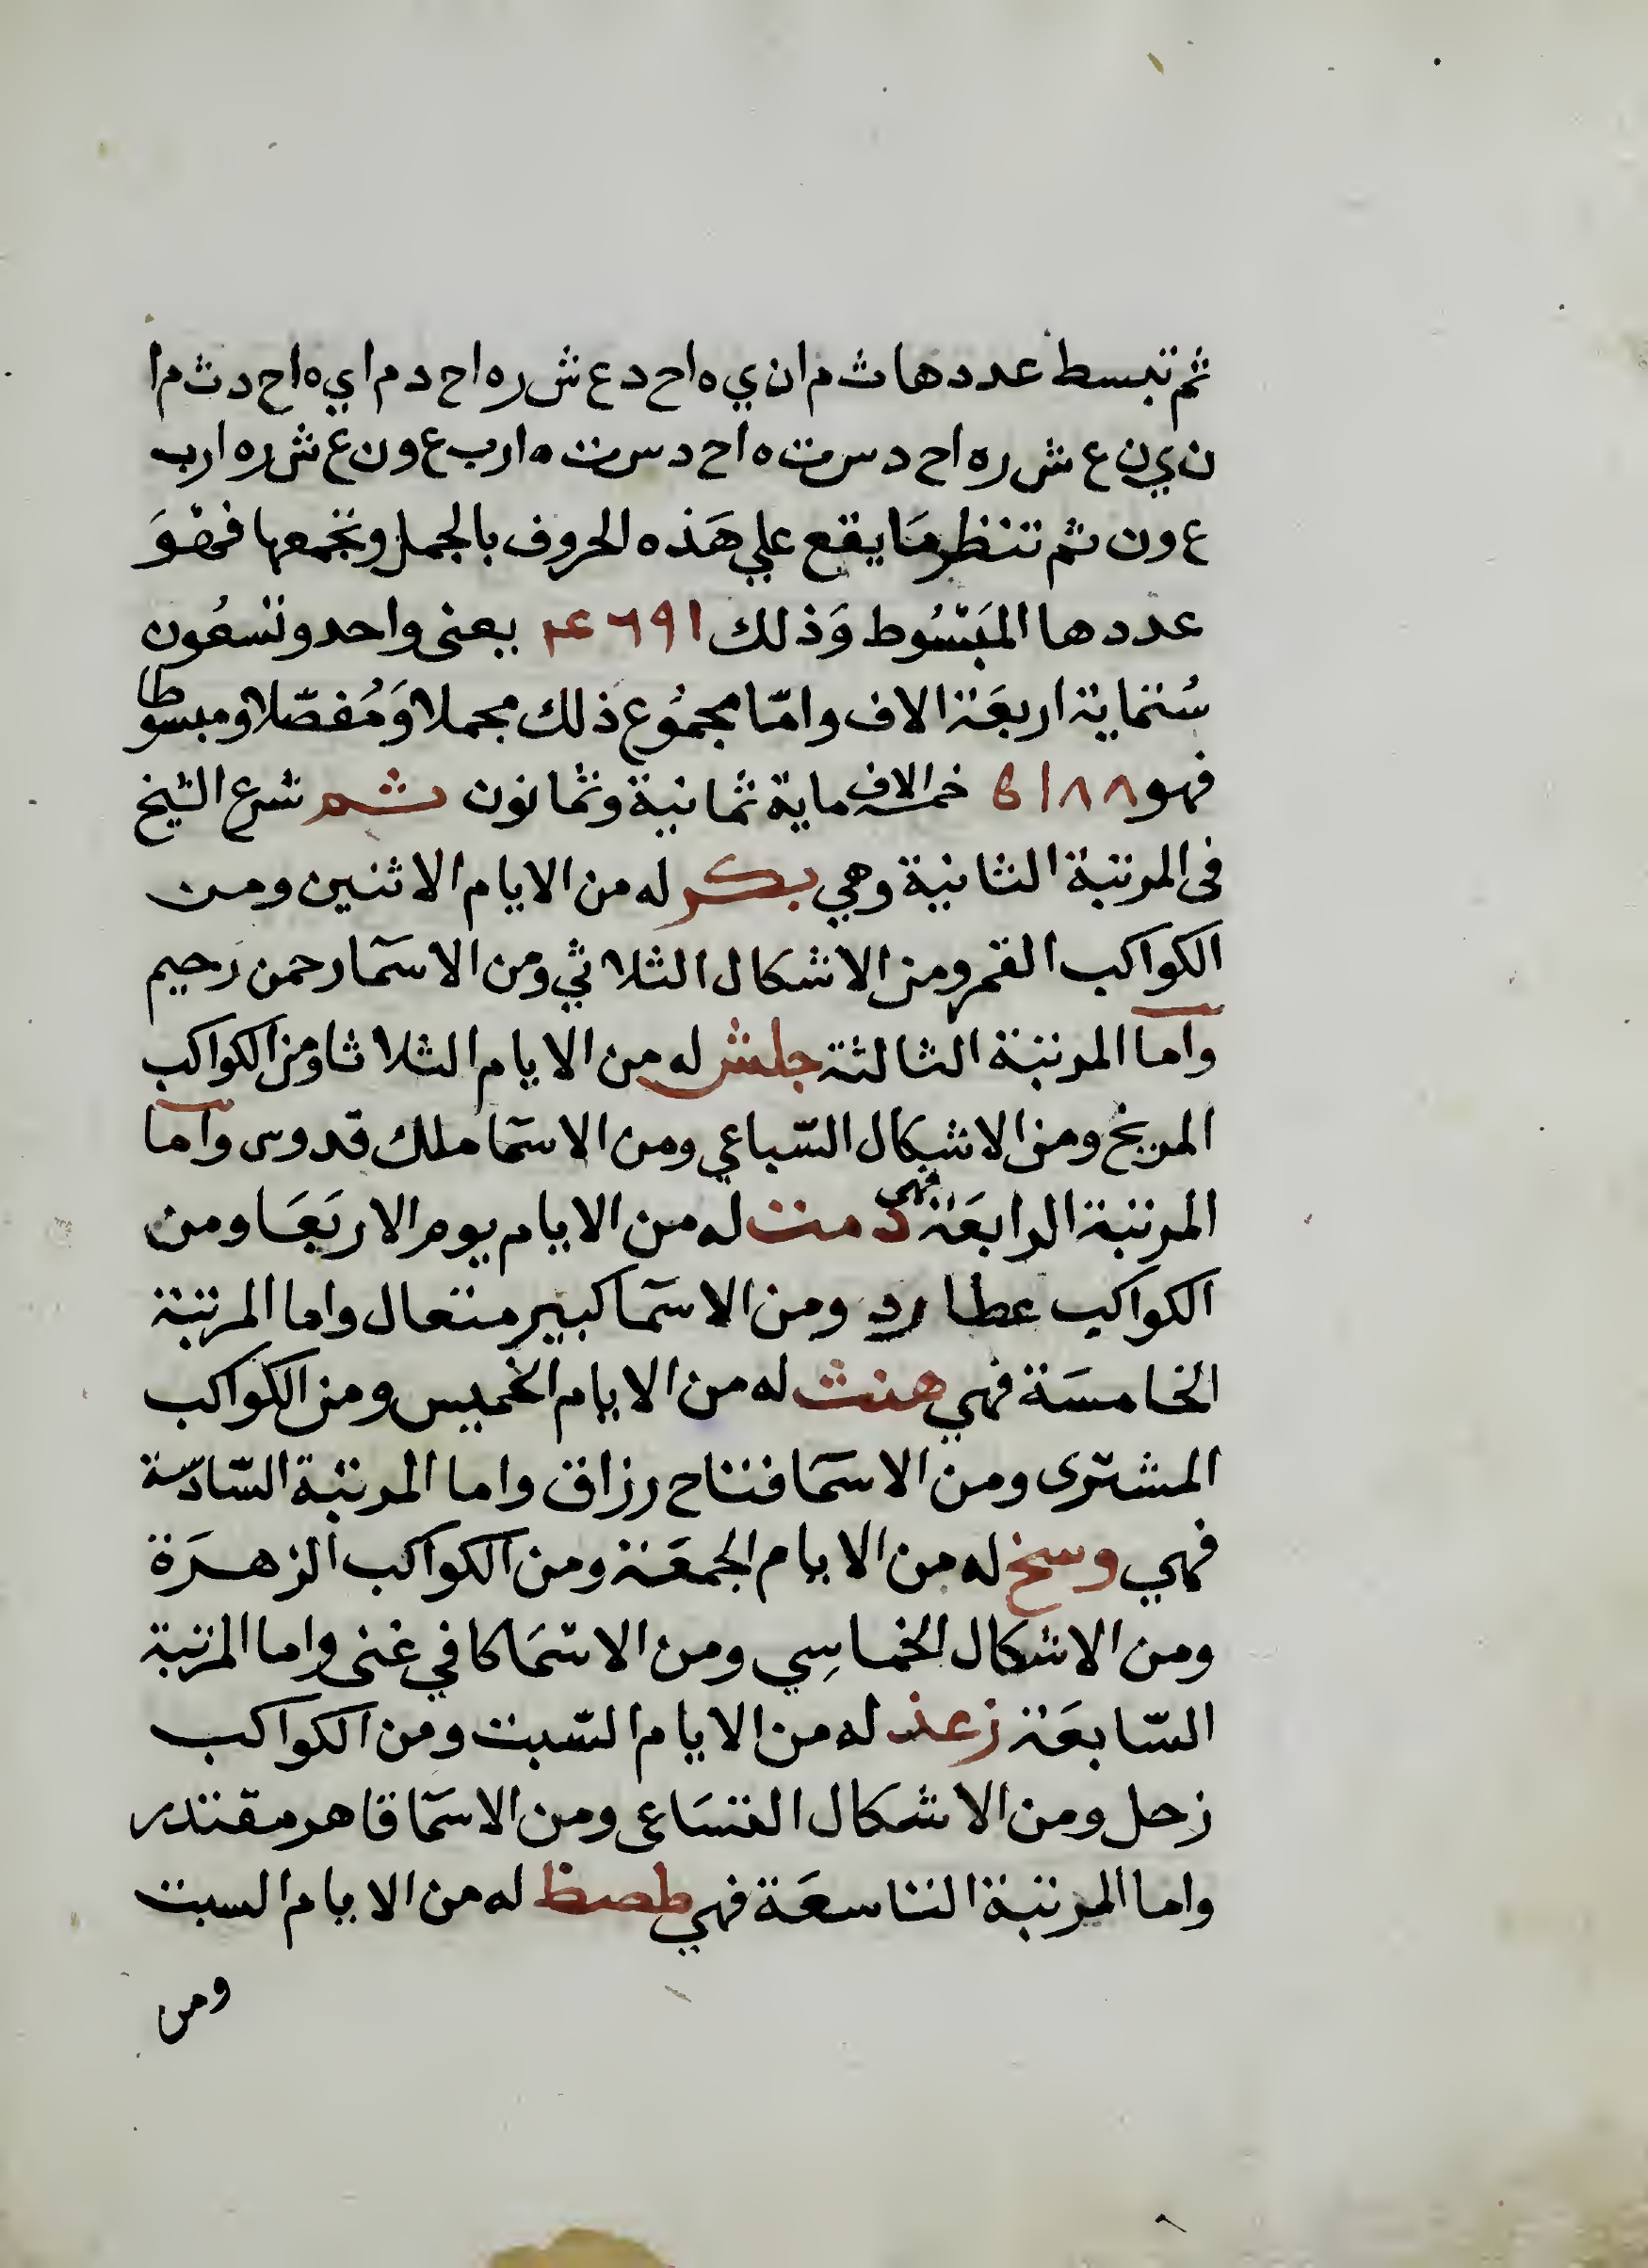 ثم تبسط عددها ث م ا ن ي ه ا ح د ع ش ر ه ا ح د م ا ي ه ا ح د ث م ا
ن ي ن ع ش ر ه ا ح د س ت ه ا ح د س ت ه ا ر ب ع و ن ع ش ر ه ا ر ب
ع و ن ثم تنظر مَا يقع علي هَذه الحروف بالجمل وتجمعها فهْوَ
عددها المَبْسُوط وَذلك ١ ٩ ٦ ٤ يعنى واحد وتسعُون
سُتماية اربعَة الاف وامّا مجمُوع ذلك مجملا وَمُفصّلا ومبسوطا
فهو ٨ ٨ ١ ٥ خمسة الاف ماية ثمانية وثمانون ثم شرع الشيخ
فى المرتبة الثانية وهي بكر له من الايام الاثنين ومن
الكواكب القمر ومن الاشكال الثلاثي ومن الاسمآ رحمن رحيم
وامآ المرتبة الثالثة جلش له من الايام الثلاثا ومن الكواكب
المريخ ومن الاشكال السّباعي ومن الاسمآ ملك قدوس وامآ
المرتبة الرابعَة فهى دمت له من الايام يوم الاربَعَا ومن
الكواكب عطارد ومن الاسمآ كبير متعال واما المرتبة
الخامسَة فهي هنث له من الايام الخميس ومن الكواكب
المشترى ومن الاسمآ فتاح رزاق واما المرتبة السّادسة
فهي وسخ له من الايام الجمعَة ومن الكواكب الزهرَة
ومن الاشكال الخماسِي ومن الاسمَا كافي غنى واما المرتبة
السّابعَة زعذ له من الايام السّبت ومن الكواكب
زحل ومن الاشكال التسَاعى ومن الاسمآ قاهر مقتدر
واما المرتبة التاسعَة فهي طصظ له من الايام السبت
ومن